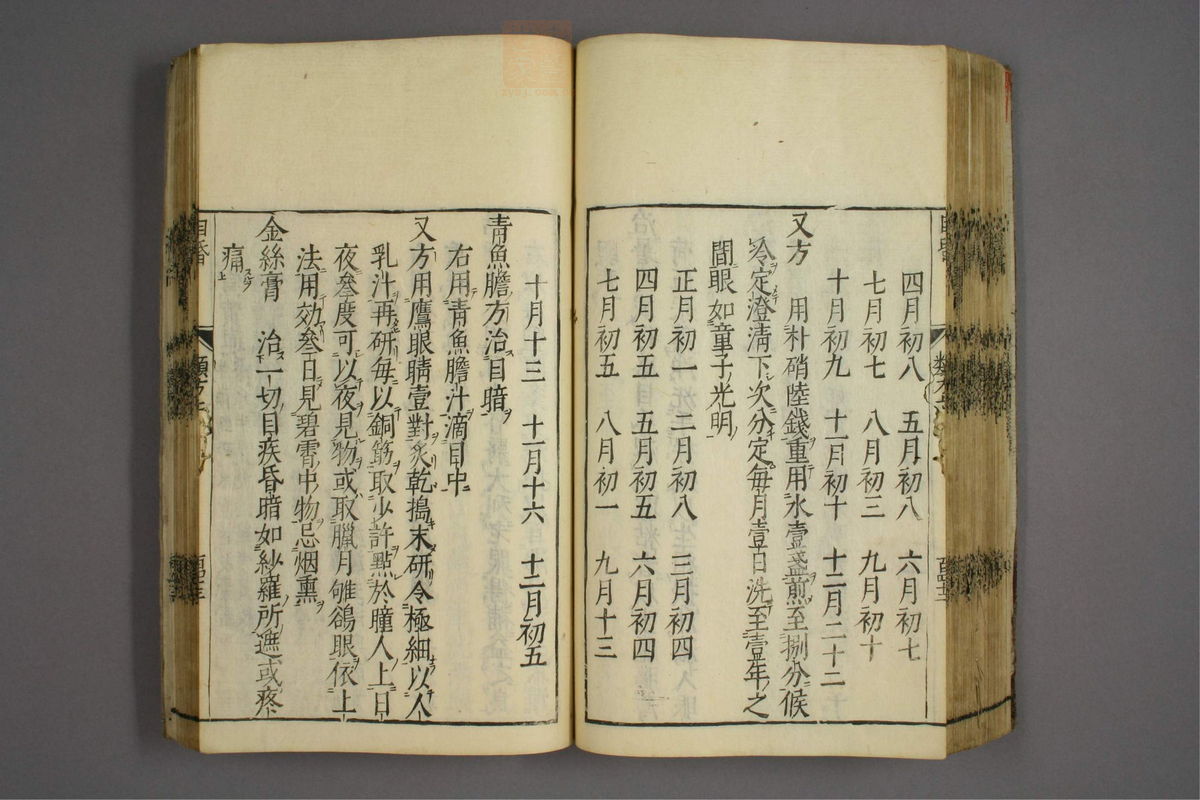 四月初八 五月初八 六月初七
七月初七 八月初三 九月初十
十月初九 十一月初十 十二月二十二
又方 用朴硝陸錢重用水壹盞煎至捌分候
冷定澄清下次分定每月壹日洗至壹年之
間眼如童子光明
正月初一 二月初八 三月初四
四月初五 五月初五 六月初四
七月初五 八月初一 九月十三
十月十三 十一月十六 十二月初五
青魚膽方治目暗
右用青魚膽汁滴目中
又方用鷹眼睛壹對炙乾搗末研令極細以人
乳汁再研每以銅筯取少許點於瞳人上日
夜叄度可以夜見物或取臘月鴝鵒眼依上
法用効叄日見碧霄中物忌烟熏
金絲膏 治一切目疾昏暗如紗羅所遮或疼
痛
目昏